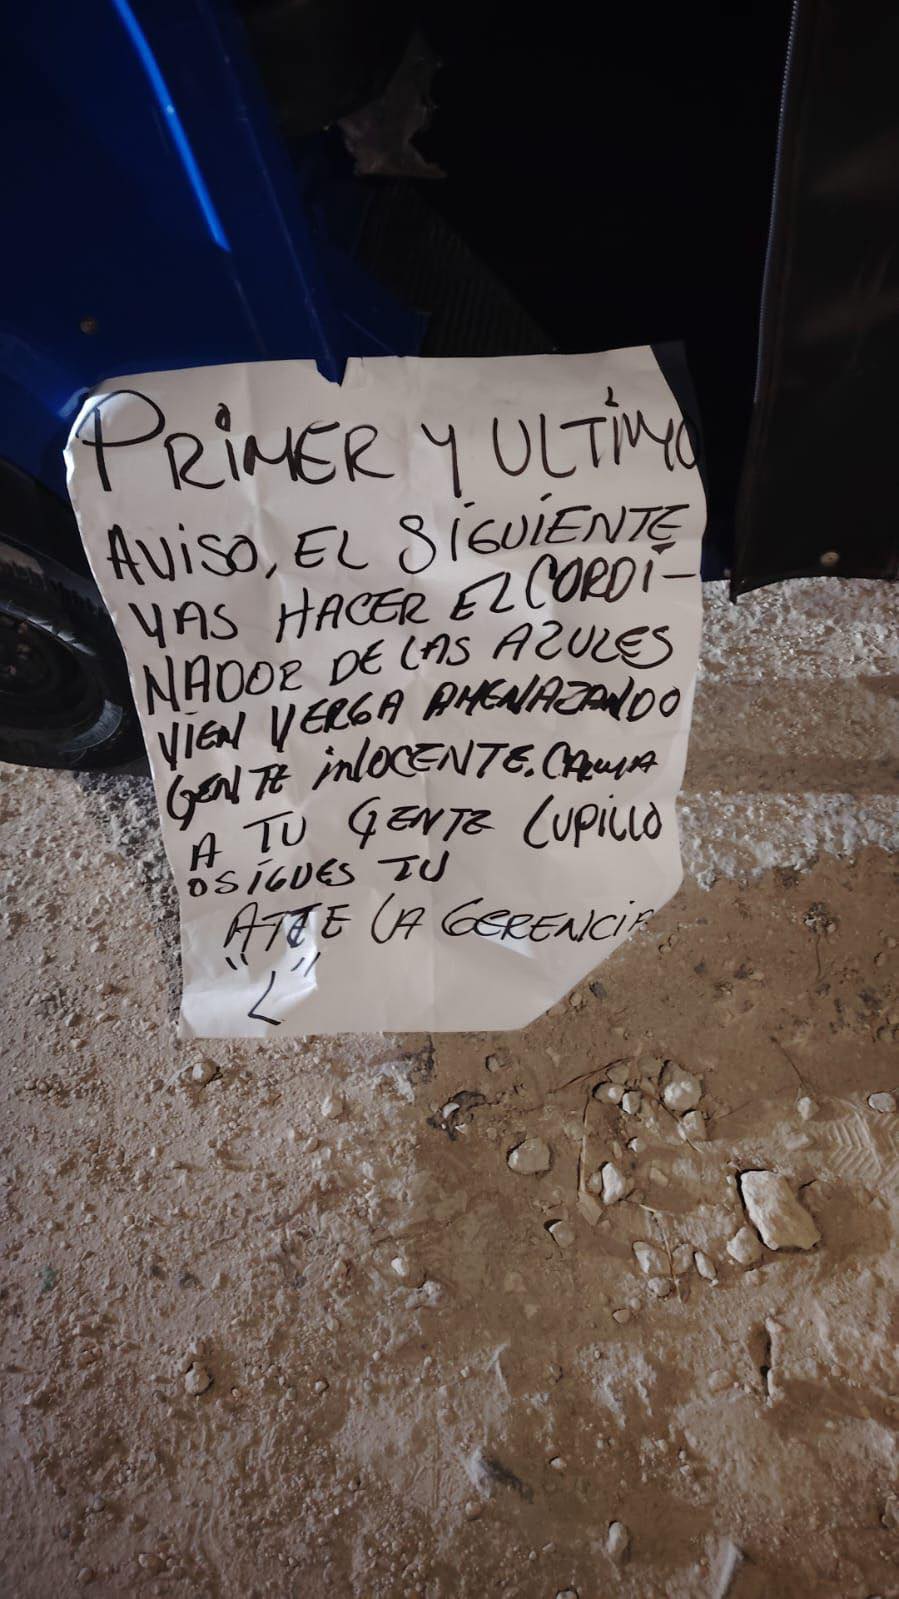 PRIMER Y ULTIMO
AVISO, EL SIGUIENTE
VAS HACER EL CORDI-
NADOR DE LAS AZULES
VIEN VERGA AMENAZANDO
GENTE INOCENTE. CALMA
A TU GENTE LUPILLO
O SIGUES TU
ATTE LA GERENCIA
"L"